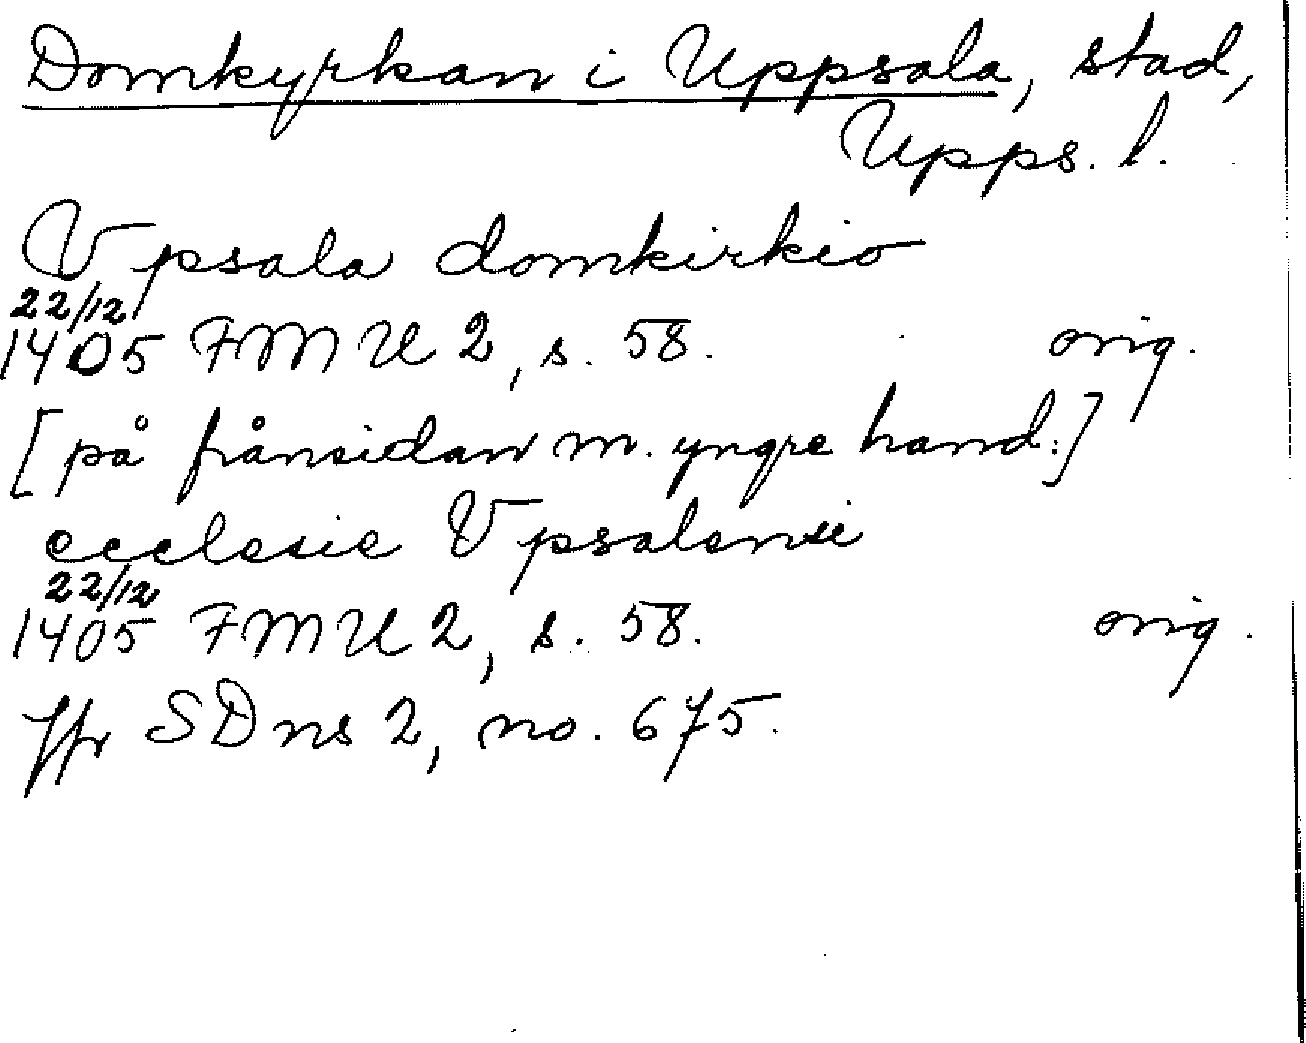 Domkyrkan i Uppsala, stad,
Upps. l.
Vpsala domkirkio
22/12
1405 FMU 2, s. 58. orig.
[på frånsidan m. yngre hand:]
ecclesie Vpsalensi
22/12
1405 FMU 2, s. 58. orig.
Jfr SDns 2, no. 675.